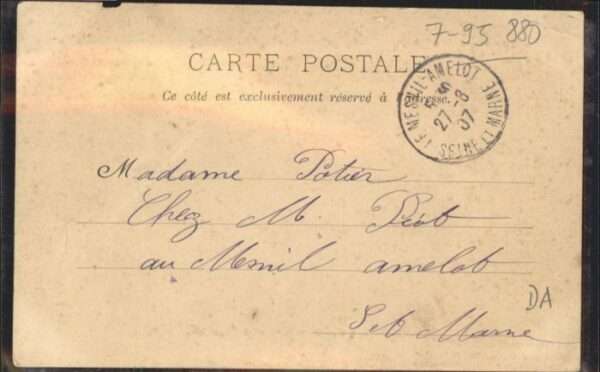 7-95 880
CARTE POSTALE
Ce côté est exclusivement réservé à l'adresse.
LE MESNIL-AMELOT
27-8
07
SEINE ET MARNE
Madame Potier
Chez M. Piot
au Mesnil amelot
S et Marne
DA